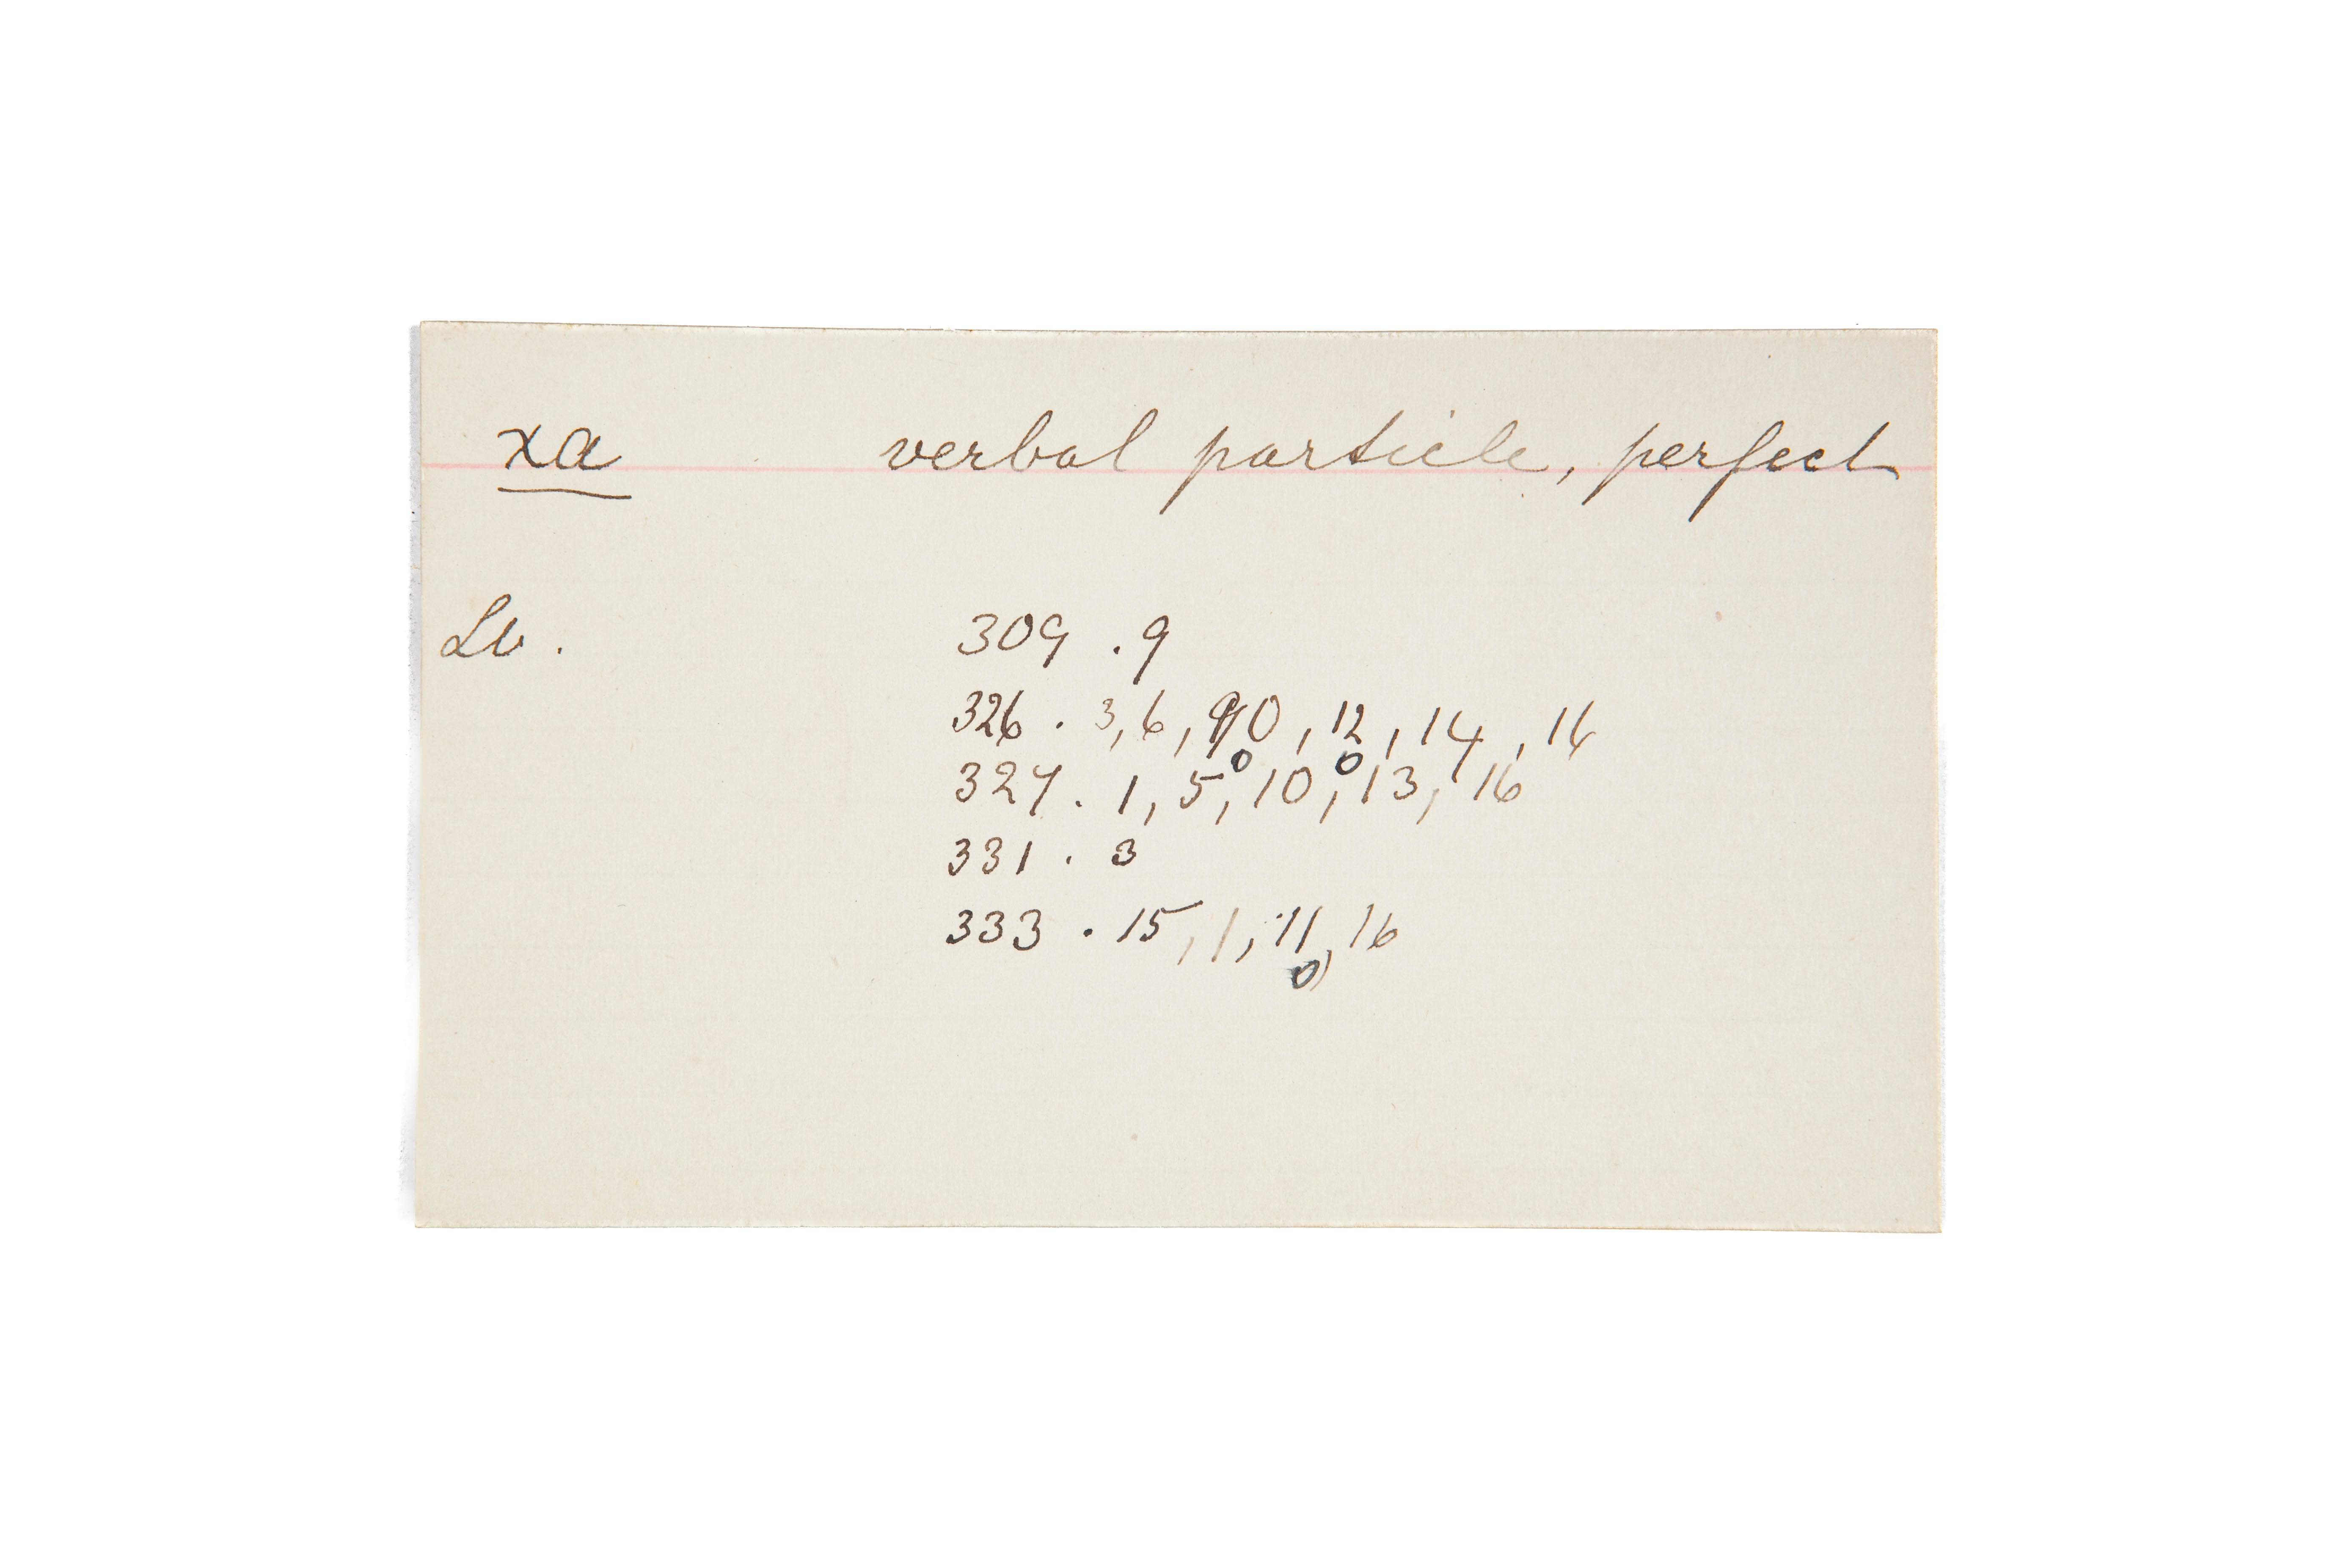 xa verbal particle, perfect
Lb. 309 .9
326 . 3, 6, 10, 12, 14, 16
327 . 1, 5, 10, 13, 16
331 . 3
333 . 15, 1, 11, 16